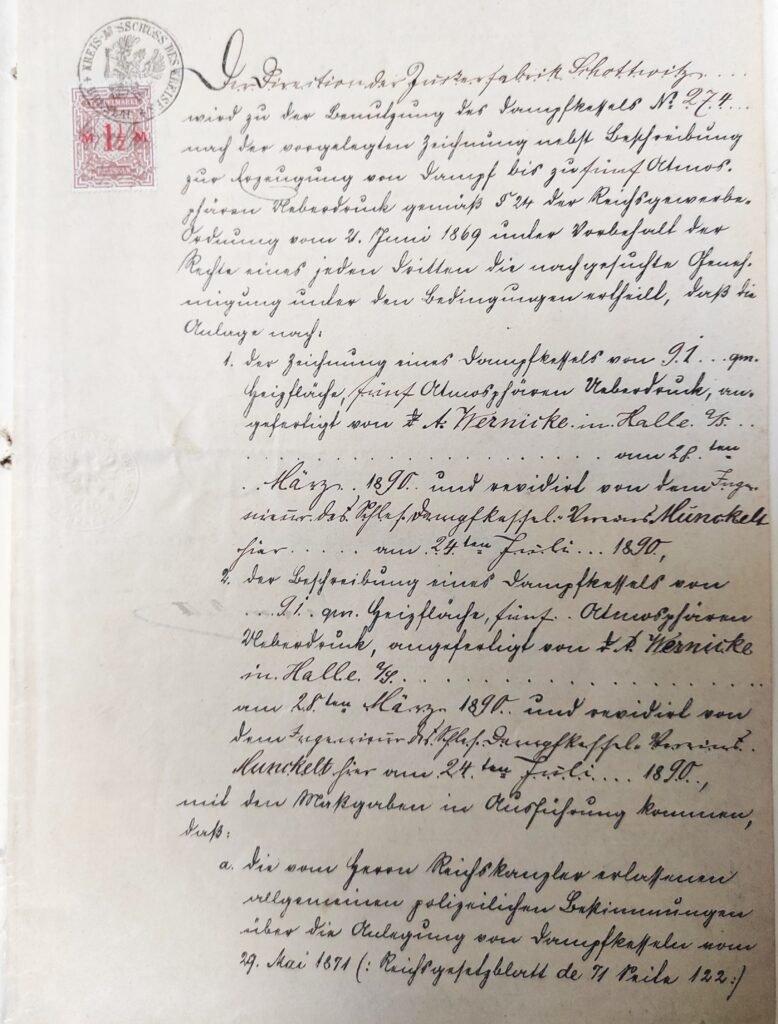 KREIS-AUSSCHUSS DES
STEMPELMARKE
M. 1½ M.
Der Direction der Zuckerfabrik Schottwitz ....
wird zu der Benutzung des Dampfkessels No. 274...
nach der vorgelegten Zeichnung nebst Beschreibung
zur Erzeugung von Dampf bis zu fünf Atmos-
phären Ueberdruck gemäß § 24 der Reichsgewerbe-
Ordnung vom 21. Juni 1869 unter Vorbehalt der
Rechte eines jeden Dritten die nachgesuchte Geneh-
migung unter den Bedingungen ertheilt, daß die
Anlage nach:
1. der Zeichnung eines Dampfkessels von 91... qm.
Heizfläche, fünf Atmosphären Ueberdruck, an-
gefertigt von A. Wernicke in Halle a/S. ..
. . . . . . . . . . . . . . . . . am 28. ten
..März.. 1890.. und revidirt von dem Inge-
nieur des Schles. Dampfkessel-Vereins Munckelt
hier ..... am 24ten Juli... 1890.,
2. der Beschreibung eines Dampfkessels von
...91. qm. Heizfläche, fünf.. Atmosphären
Ueberdruck, angefertigt von A. Wernicke
in Halle a/S. . . . . . . . . . . . . . . .
am 28.ten März 1890.. und revidirt von
dem Ingenieur des Schles. Dampfkessel-Vereins..
Munckelt hier am 24.ten Juli.... 1890.,
mit den Maßgaben in Ausführung kommen,
daß:
a. die vom Herrn Reichskanzler erlassenen
allgemeinen polizeilichen Bestimmungen
über die Anlegung von Dampfkesseln vom
29. Mai 1871 (: Reichsgesetzblatt de 71 Seite 122:)